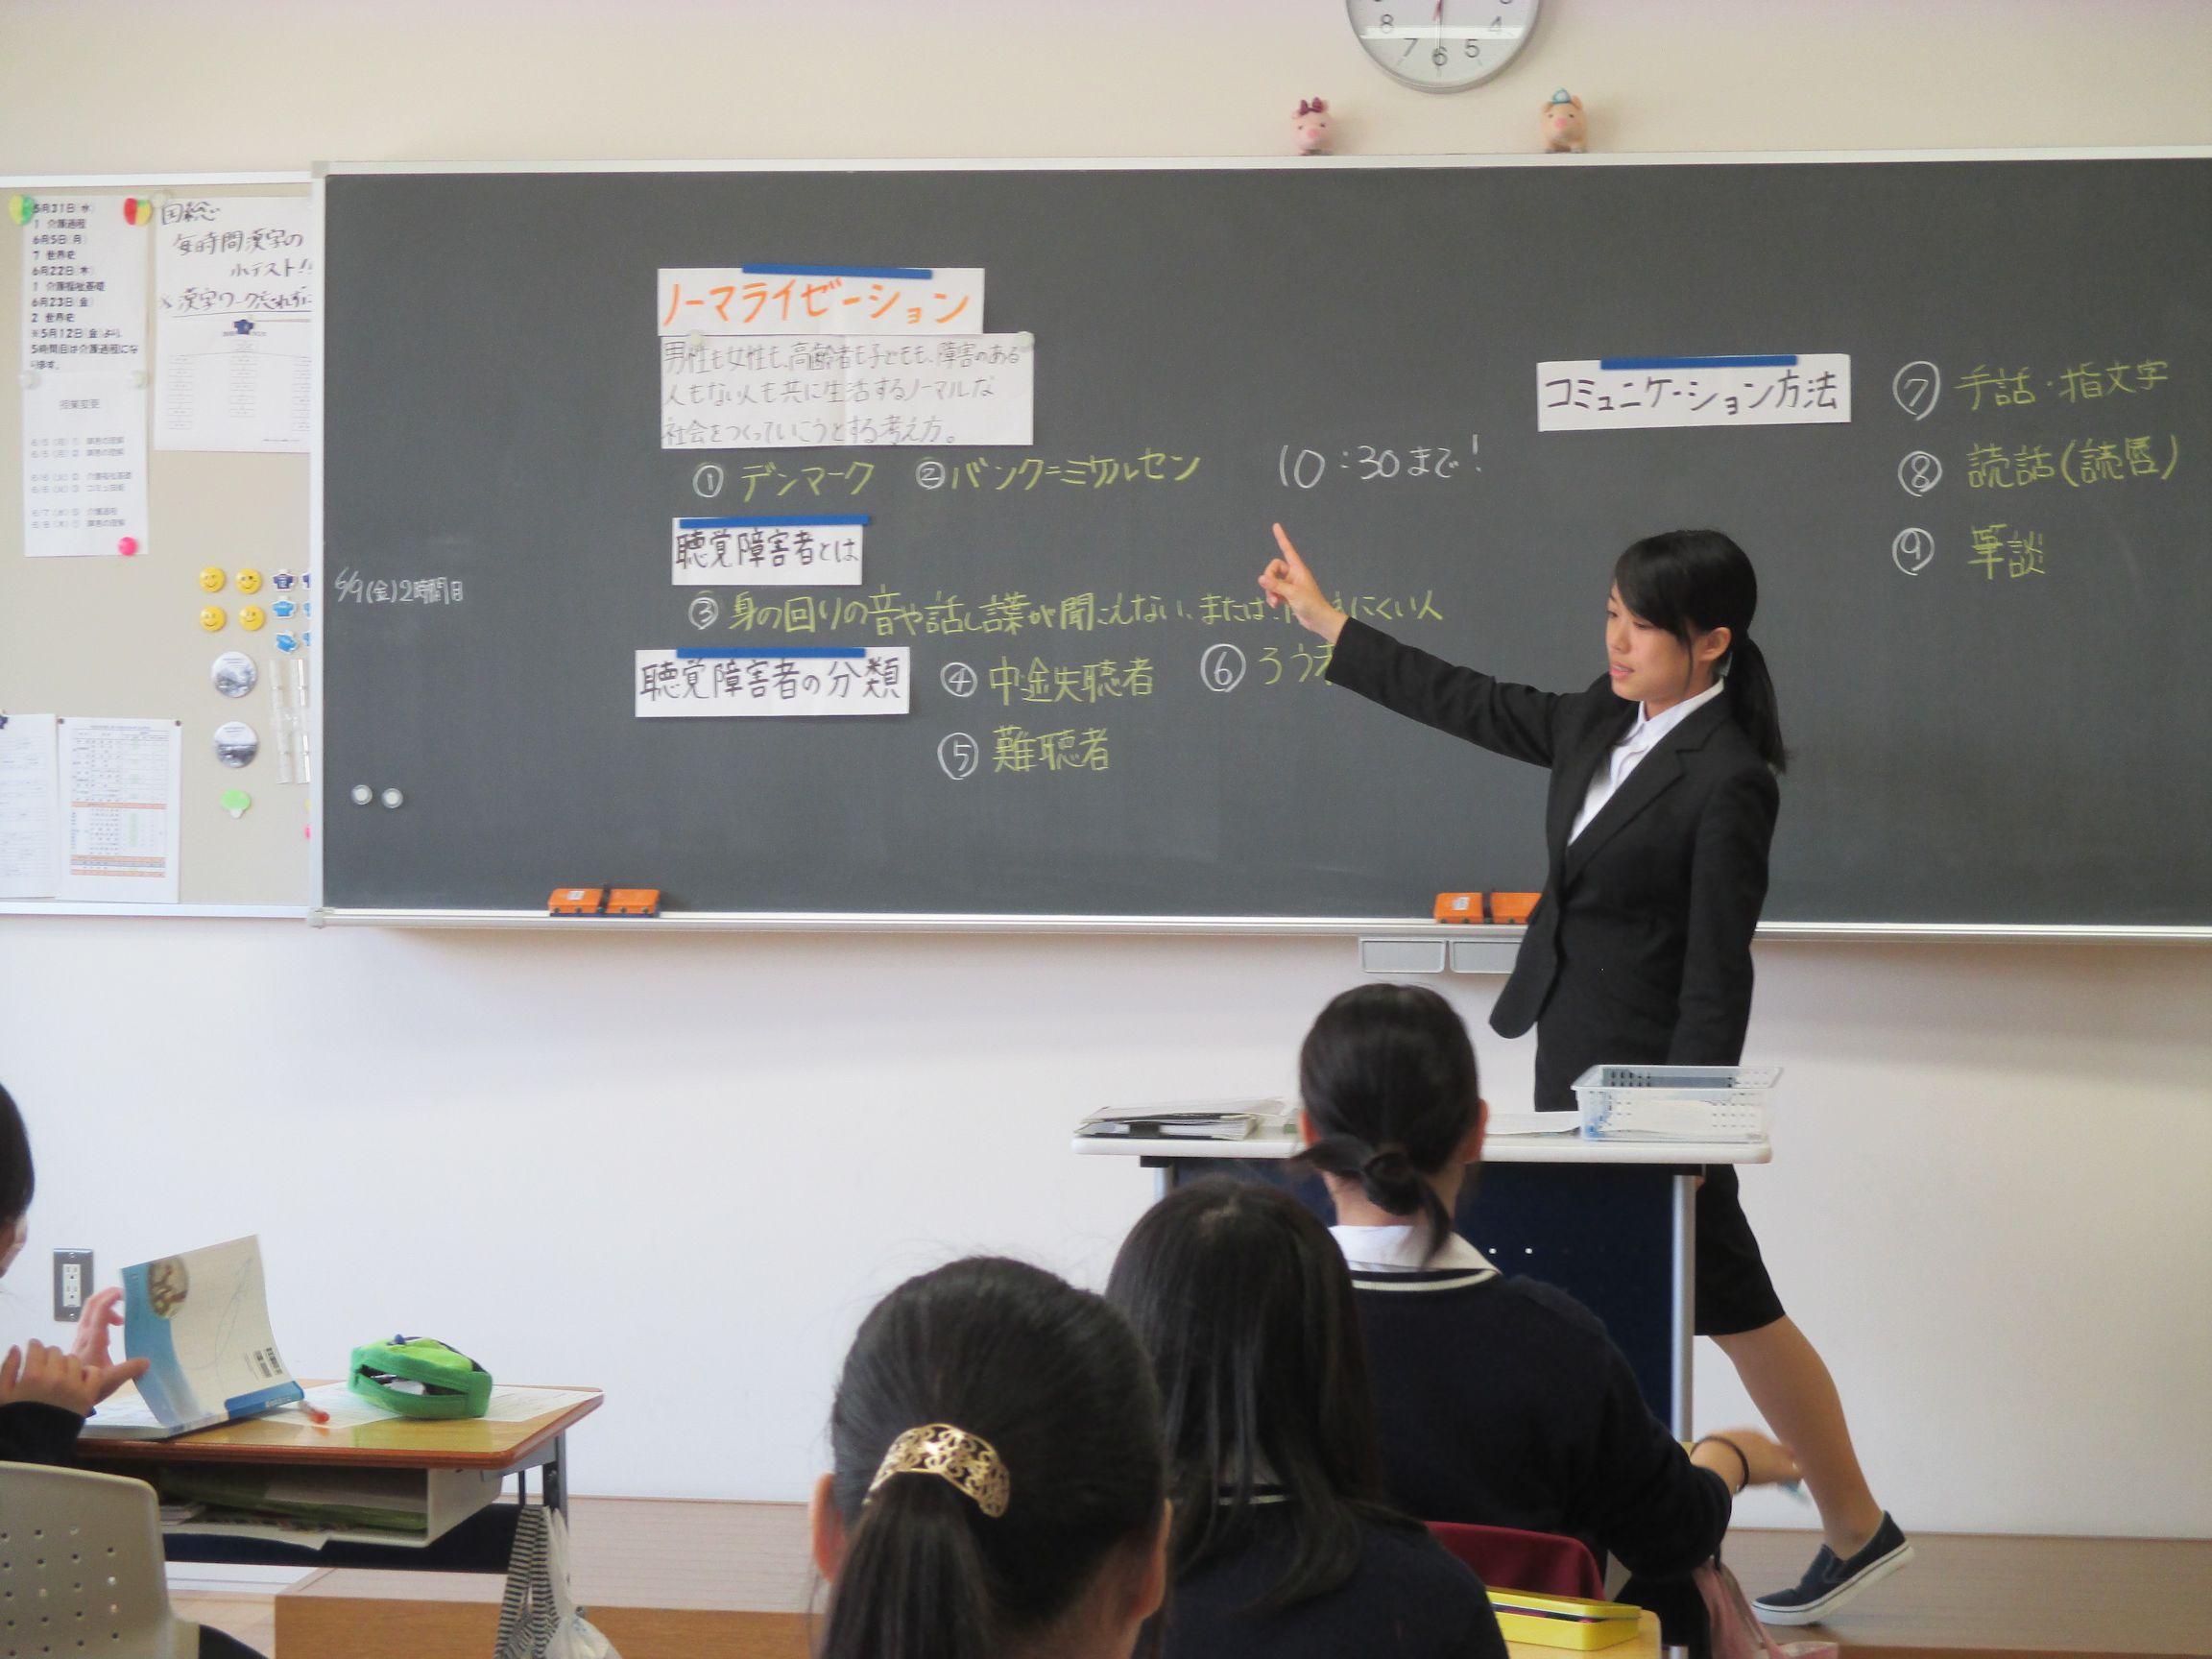 8 7 6 5 4
5月31日(水)
1 介護過程
6月5日(月)
7 世界史
6月22日(木)
1 介護福祉基礎
6月23日(金)
2 世界史
※5月12日(金)より、
5時間目は介護過程にな
ります。
授業変更
国総
毎時間漢字の
小テスト!!
※漢字ワーク忘れずに
6/9(金)2時間目
ノーマライゼーション
男性も女性も、高齢者も子どもも、障害のある
人もない人も共に生活するノーマルな
社会をつくっていこうとする考え方。
① デンマーク ②バンク=ミケルセン
10:30まで!
聴覚障害者とは
③ 身の回りの音や話し言葉が聞こえない、または、 にくい人
聴覚障害者の分類
④ 中途失聴者
⑤ 難聴者
⑥ ろう
コミュニケーション方法
⑦ 手話・指文字
⑧ 読話(読唇)
⑨ 筆談